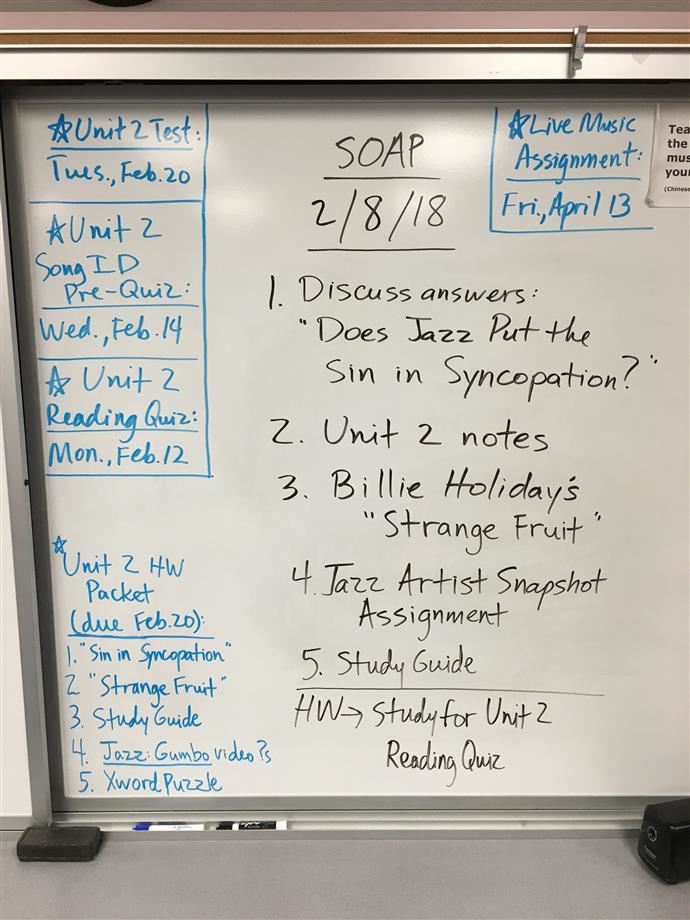 ☆Unit 2 Test:
Tues., Feb. 20
☆Unit 2
Song ID
Pre-Quiz:
Wed., Feb. 14
☆ Unit 2
Reading Quiz:
Mon., Feb. 12
☆
Unit 2 HW
Packet
(due Feb. 20):
1. "Sin in Syncopation"
2. "Strange Fruit"
3. Study Guide
4. Jazz: Gumbo video ?s
5. Xword Puzzle
SOAP
2/8/18
1. Discuss answers:
"Does Jazz Put the
Sin in Syncopation?"
2. Unit 2 notes
3. Billie Holiday's
"Strange Fruit"
4. Jazz Artist Snapshot
Assignment
5. Study Guide
HW→ Study for Unit 2
Reading Quiz
☆Live Music
Assignment:
Fri., April 13
the
(Chinese